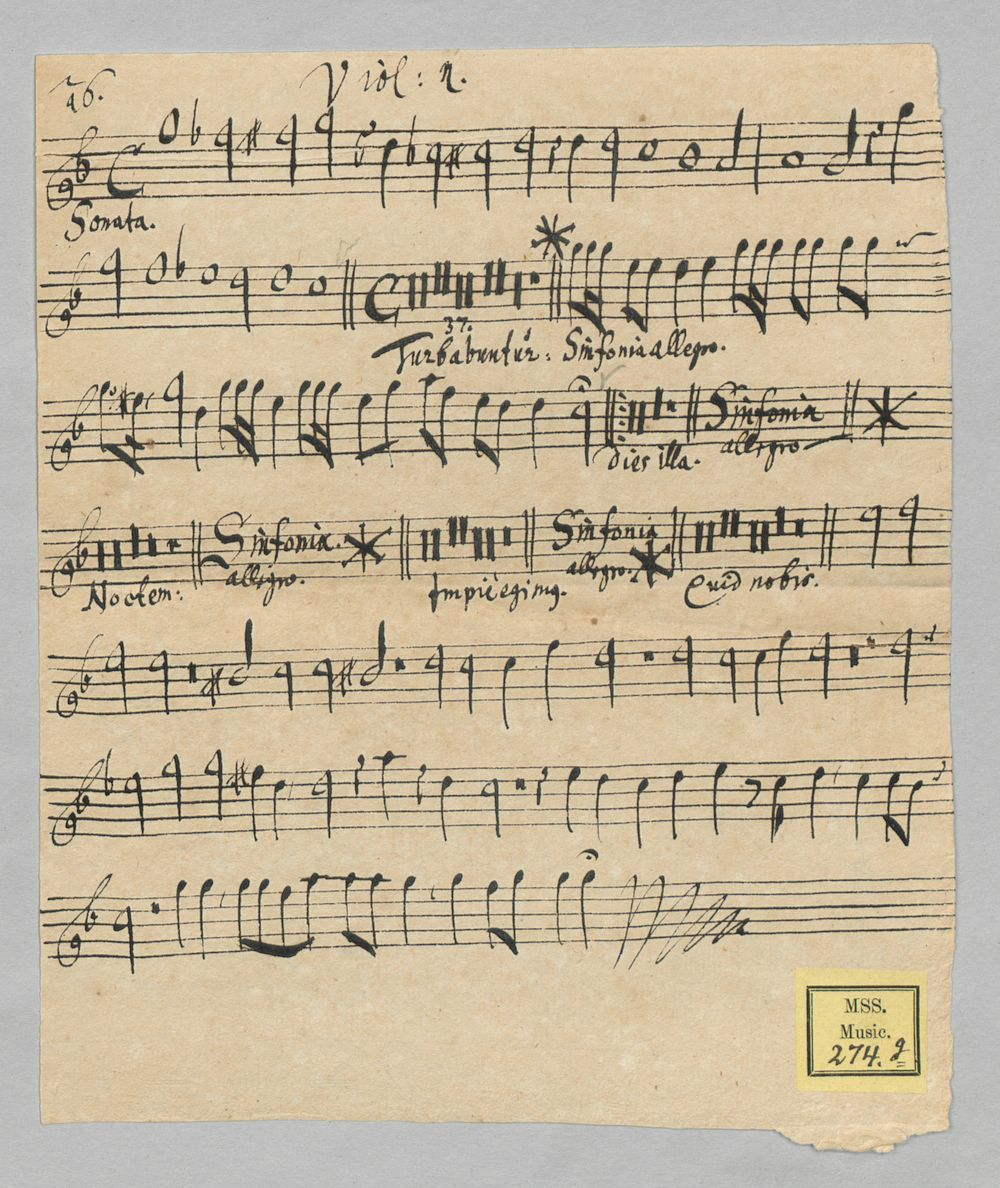 26.
Viol: 2.
Sonata.
37.
Turbabuntur: Sinfonia allegro.
Sinfonia
Dies illa. allegro
Sinfonia. Sinfonia
Noctem: allegro. Impie egimq. allegro. Quid nobis.
MSS.
Music.
274. g